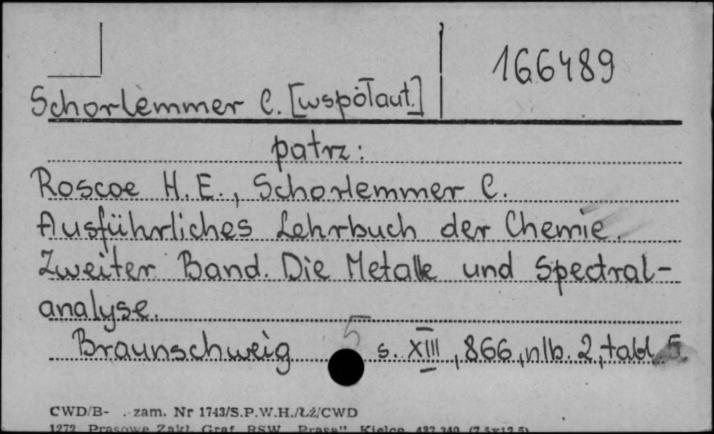 166489
Schorlemmer C. [współaut.]
patrz:
Roscoe H.E., Schorlemmer C.
Ausführliches Lehrbuch der Chemie.
Zweiter Band. Die Metalle und Spectral-
analyse.
Braunschweig s. XIII, 866, nlb. 2, tabl. 5.
CWD/B- . zam. Nr 1743/S.P.W.H./ŁŻ/CWD
1272 Prasowe Zakł. Graf. RSW „Prasa" Kielce 437 340 (7,5x12,5)